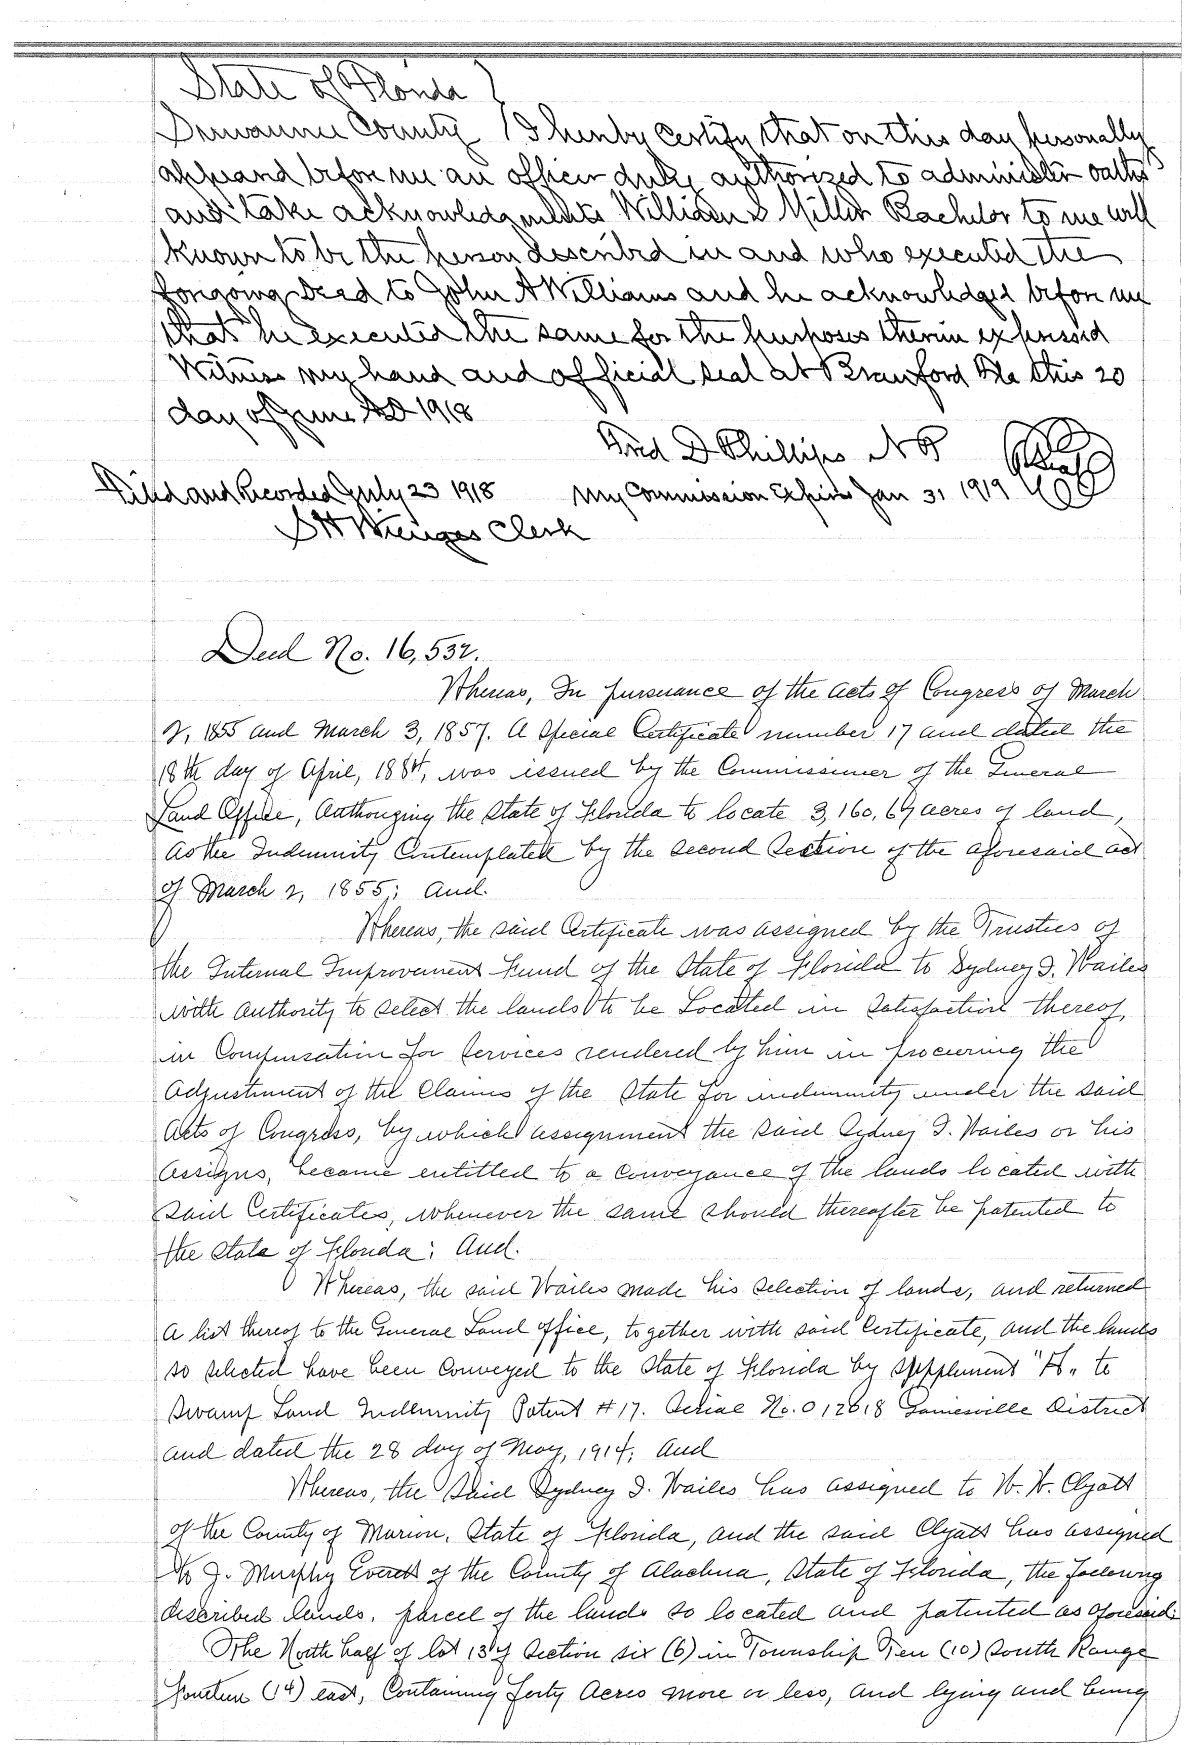 State of Florida }
Suwannee County } I hereby certify that on this day personally
appeared before me an officer duly authorized to administer oaths
and take acknowledgments William S Miller Bachelor to me well
known to be the person described in and who executed the
forgoing Deed to John A Williams and he acknowledged before me
that he executed the same for the purposes therein expressed
Witness my hand and official seal at Branford Fla this 20
day of June AD 1918
Fred D Phillips N P
Filed and Recorded July 23 1918 My Commission Expires Jan 31 1919
Clerk
Deed No. 16,532.
Whereas, In pursuance of the acts of Congress of March
2, 1855 and March 3, 1857. A Special Certificate number 17 and dated the
18th day of April, 1884, was issued by the Commissioner of the General
Land Office, Authorizing the State of Florida to locate 3,160,67 acres of land,
As the Indemnity Contemplated by the second Section of the aforesaid act
of March 2, 1855; And.
Whereas, the said Certificate was assigned by the Trustees of
the Internal Improvement Fund of the State of Florida to Sydney I. Wailes
with authority to select the lands to be Located in Satisfaction thereof,
in Compensation for Services rendered by him in procuring the
Adjustment of the Claims of the State for indemnity under the said
Acts of Congress, by which assignment the said Sydney I. Wailes or his
Assigns, became entitled to a conveyance of the lands located with
said Certificates, whenever the same should thereafter be patented to
the State of Florida; And.
Whereas, the said Wailes made his selection of lands, and returned
A list thereof to the General Land office, together with said Certificate, and the lands
so selected have been Conveyed to the State of Florida by Supplement "H" to
Swamp Land Indemnity Patent #17. Serial No. 012618 Gainesville District
and dated the 28 day of May, 1914; And
Whereas, the said Sydney I. Wailes has assigned to W. W. Clyatt
of the County of Marion, State of Florida, and the said Clyatt has assigned
to J. Murphy Everett of the County of Alachua, State of Florida, the following
described lands, parcel of the lands so located and patented as aforesaid:
The North half of lot 13 of Section six (6) in Township Ten (10) South Range
fourteen (14) east, Containing forty Acres more or less, and lying and being